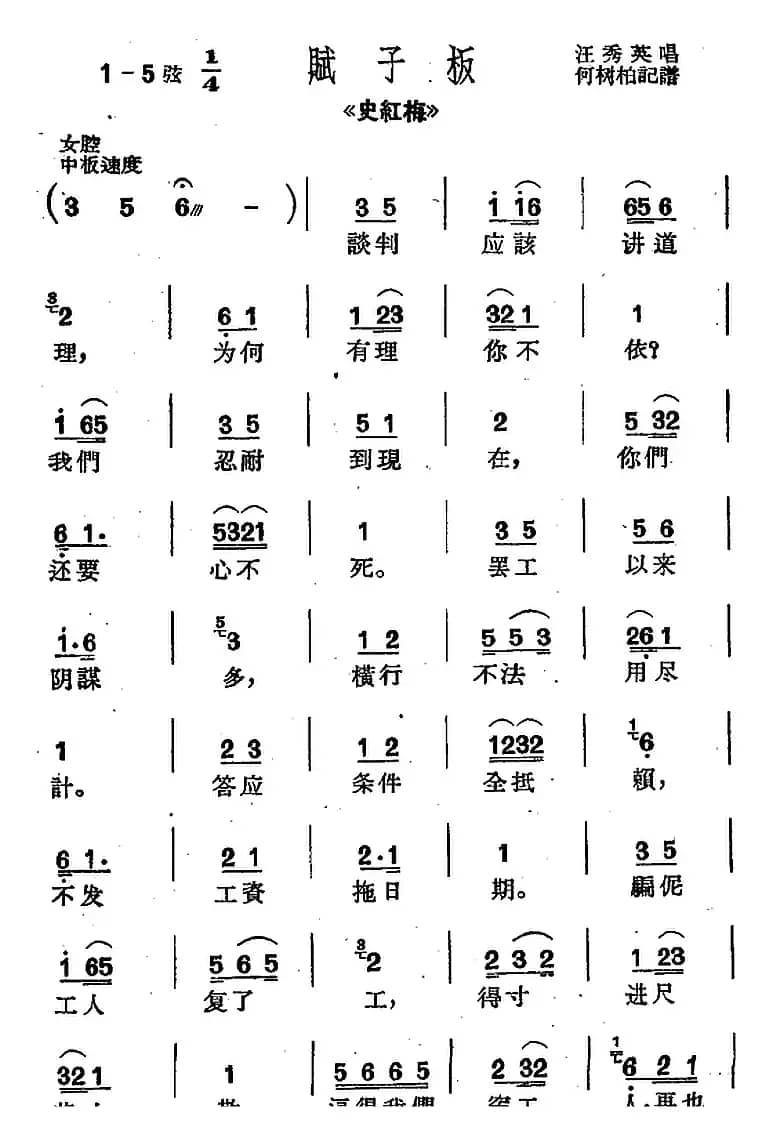 1-5弦 1/4 賦子板 汪秀英唱
何树柏記譜
《史紅梅》
女腔
中板速度
(3 5 6 -) 3 5 1 16 65 6
談判 应該 讲道
3 2 6 1 1 23 32 1 1
理， 为何 有理 你不 依？
1 65 3 5 5 1 2 5 32
我們 忍耐 到現 在， 你們
6 1· 5321 1 3 5 5 6
还要 心不 死。 罢工 以来
1·6 5 3 1 2 5 5 3 26 1
阴謀 多， 橫行 不法 用尽
1 2 3 1 2 1232 1 6
計。 答应 条件 全抵 賴，
6 1· 2 1 2·1 1 3 5
不发 工資 拖日 期。
1 65 5 6 5 3 2 2 3 2 1 23
工人 复了 工， 得寸 进尺
32 1 1 5 6 6 5 2 32 1 6 2 1